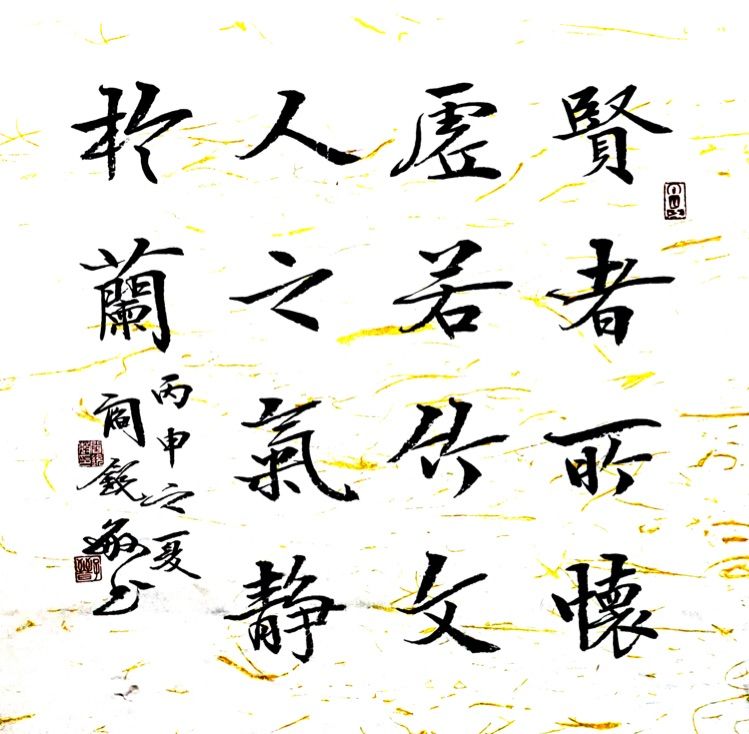 賢者所懷
虛若竹文
人之氣靜
於蘭
丙申之夏
商銳敏书